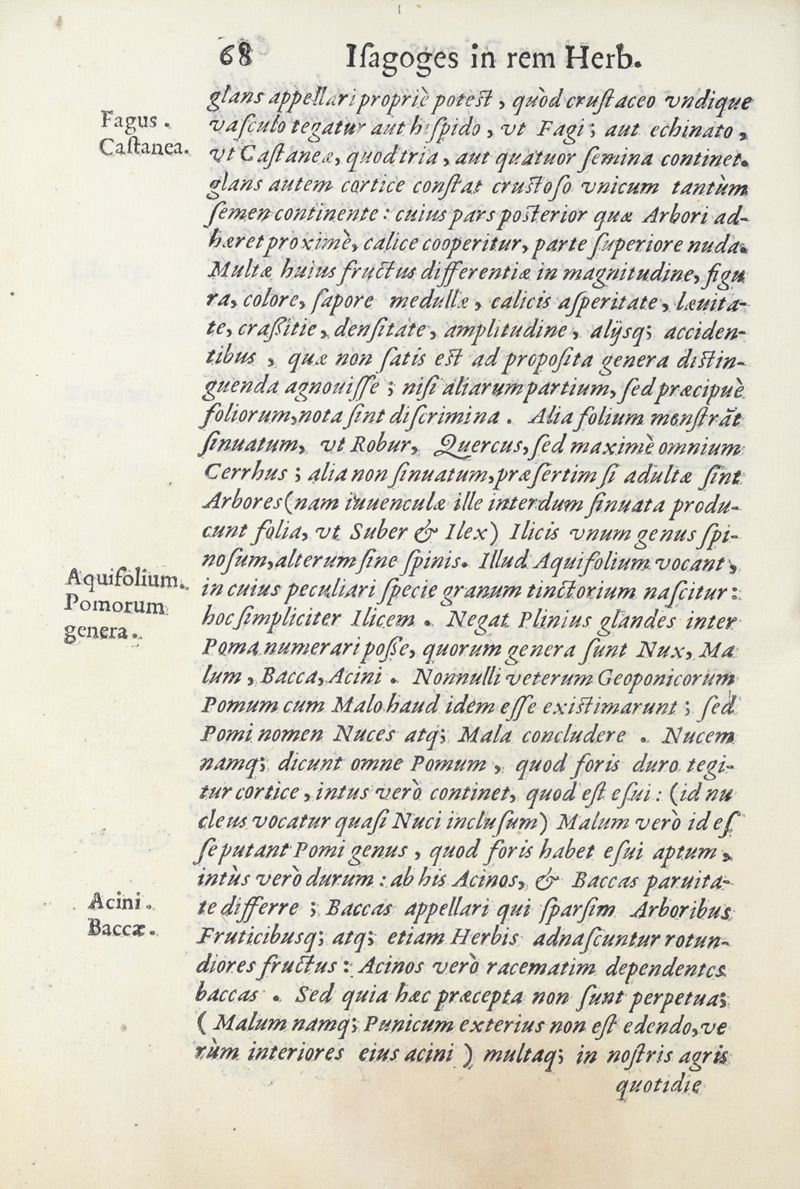 68 Iſagoges in rem Herb.
glans appellari propriè poteſt, quòd cruſtaceo vndique
Fagus.
vaſculo tegatur aut hiſpido, vt Fagi; aut echinato,
Caſtanea.
vt Caſtaneæ, quod tria, aut quatuor ſemina continet.
glans autem cortice conſtat cruſtoſo vnicum tantùm
ſemen continente: cuius pars poſterior quæ Arbori ad-
hæret proximè, calice cooperitur, parte ſuperiore nuda.
Multæ huius fructus differentiæ in magnitudine, figu
ra, colore, ſapore medullæ, calicis aſperitate, læuita-
te, craſſitie, denſitate, amplitudine, alijsq; acciden-
tibus, quæ non ſatis eſt ad propoſita genera diſtin-
guenda agnouiſſe; niſi aliarum partium, ſed præcipuè
foliorum, nota ſint diſcrimina. Alia folium monſtrãt
ſinuatum, vt Robur, Quercus, ſed maximè omnium
Cerrhus; alia non ſinuatum, præſertim ſi adultæ ſint
Arbores (nam iuuenculæ ille interdum ſinuata produ-
cunt folia, vt Suber & Ilex) Ilicis vnum genus ſpi-
noſum, alterum ſine ſpinis. Illud Aquifolium vocant,
Aquifolium.
in cuius peculiari ſpecie granum tinctorium naſcitur:
Pomorum
genera.
hoc ſimpliciter Ilicem. Negat Plinius glandes inter
Poma numerari poſſe, quorum genera ſunt Nux, Ma
lum, Bacca, Acini. Nonnulli veterum Geoponicorum
Pomum cum Malo haud idem eſſe exiſtimarunt; ſed
Pomi nomen Nuces atq; Mala concludere. Nucem
namq; dicunt omne Pomum, quod foris duro tegi-
tur cortice, intus verò continet, quod eſt eſui: (id nu
cleus vocatur quaſi Nuci incluſum) Malum verò id eſ
ſe putant Pomi genus, quod foris habet eſui aptum,
intùs verò durum: ab his Acinos, & Baccas paruita-
Acini.
te differre; Baccas appellari qui ſparſim Arboribus
Baccæ.
Fruticibusq; atq; etiam Herbis adnaſcuntur rotun-
diores fructus: Acinos verò racematim dependentes
baccas. Sed quia hæc præcepta non ſunt perpetua;
(Malum namq; Punicum exterius non eſt edendo, ve
rùm interiores eius acini) multaq; in noſtris agris
quotidie